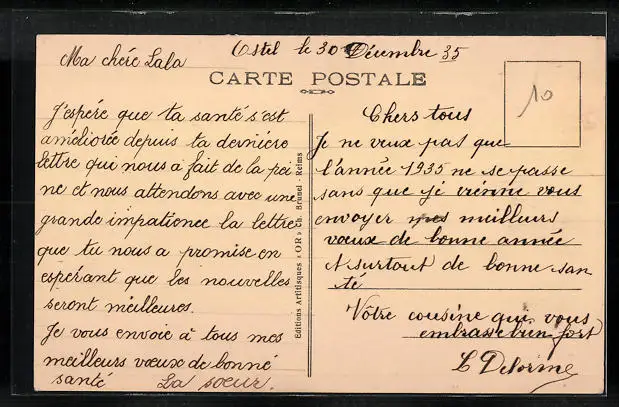 Ostel le 30 Décembre 35
CARTE POSTALE
10
Ma chére Lala
J'espére que ta santé s'est
améliorée depuis ta derniére
lettre qui nous a fait de la pei
ne et nous attendons avec une
grande impatience la lettre
que tu nous a promise en
espérant que les nouvelles
seront meilleures.
Je vous envoie à tous mes
meilleurs vœux de bonné
santé La sœur.
Editions Artistiques « OR » Ch. Brunel - Reims
Chers tous
Je ne veux pas que
l'année 1935 ne se passe
sans que je vienne vous
envoyer mes meilleurs
vœux de bonne année
et surtout de bonne san
té
Votre cousine qui vous
embrasse bien fort
L Delorme